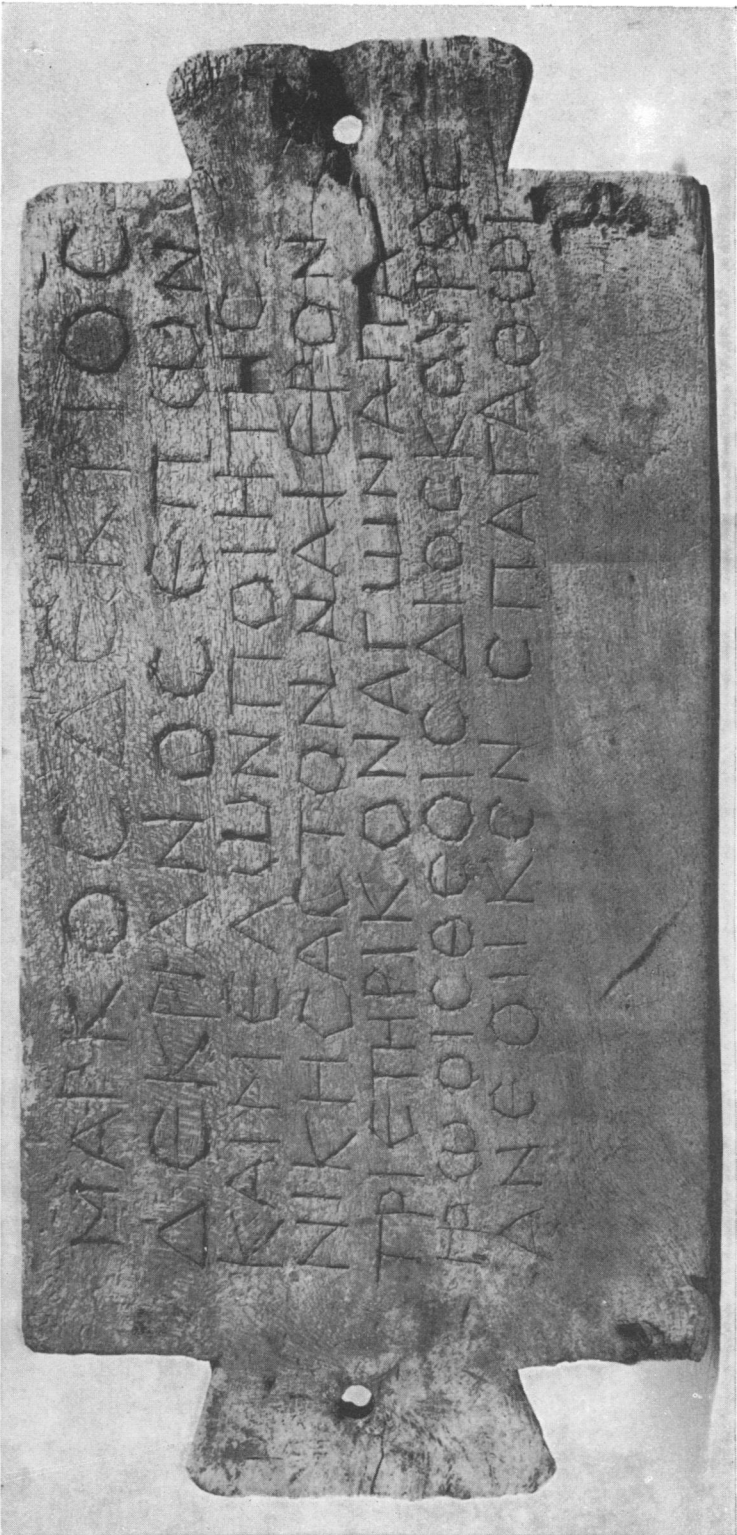 ΜΑΡΚΟϹ ΔΕΚΙΟϹ
ΔΕΚΡΙΑΝΟϹ ΕΠΩΝ
ΚΑΙ ΜΕΛΩΝ ΠΟΙΗΤΗϹ
ΝΙΚΗϹΑϹ ΤΟΝ ΝΑΙΕΡΟΝ
ΤΡΙΕΤΗΡΙΚΟΝ ΑΓΩΝΑ ΠΑΤ
ΡΩΟΙϹ ΘΕΟΙϹ ΔΙΟϹΚΟΥΡΟΙϹ
ΑΝΕΘΗΚΕΝ ΕΠ ΑΓΑΘΩΙ